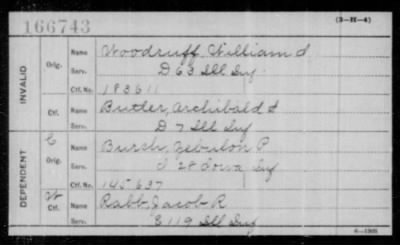 166743
(3-H-4)
INVALID
Orig.
Name Woodruff, William S
Serv. D 63 Ill Inf
Ctf. No. 183611
Ctf.
Name Butler, Archibald S
Serv. D 7 Ill Inf
DEPENDENT
C
Orig.
Name Burch, Zebulon P
Serv. I 28 Iowa Inf
Ctf. No. 145637
W
Ctf.
Name Rabb, Jacob R
Serv. E 119 Ill Inf